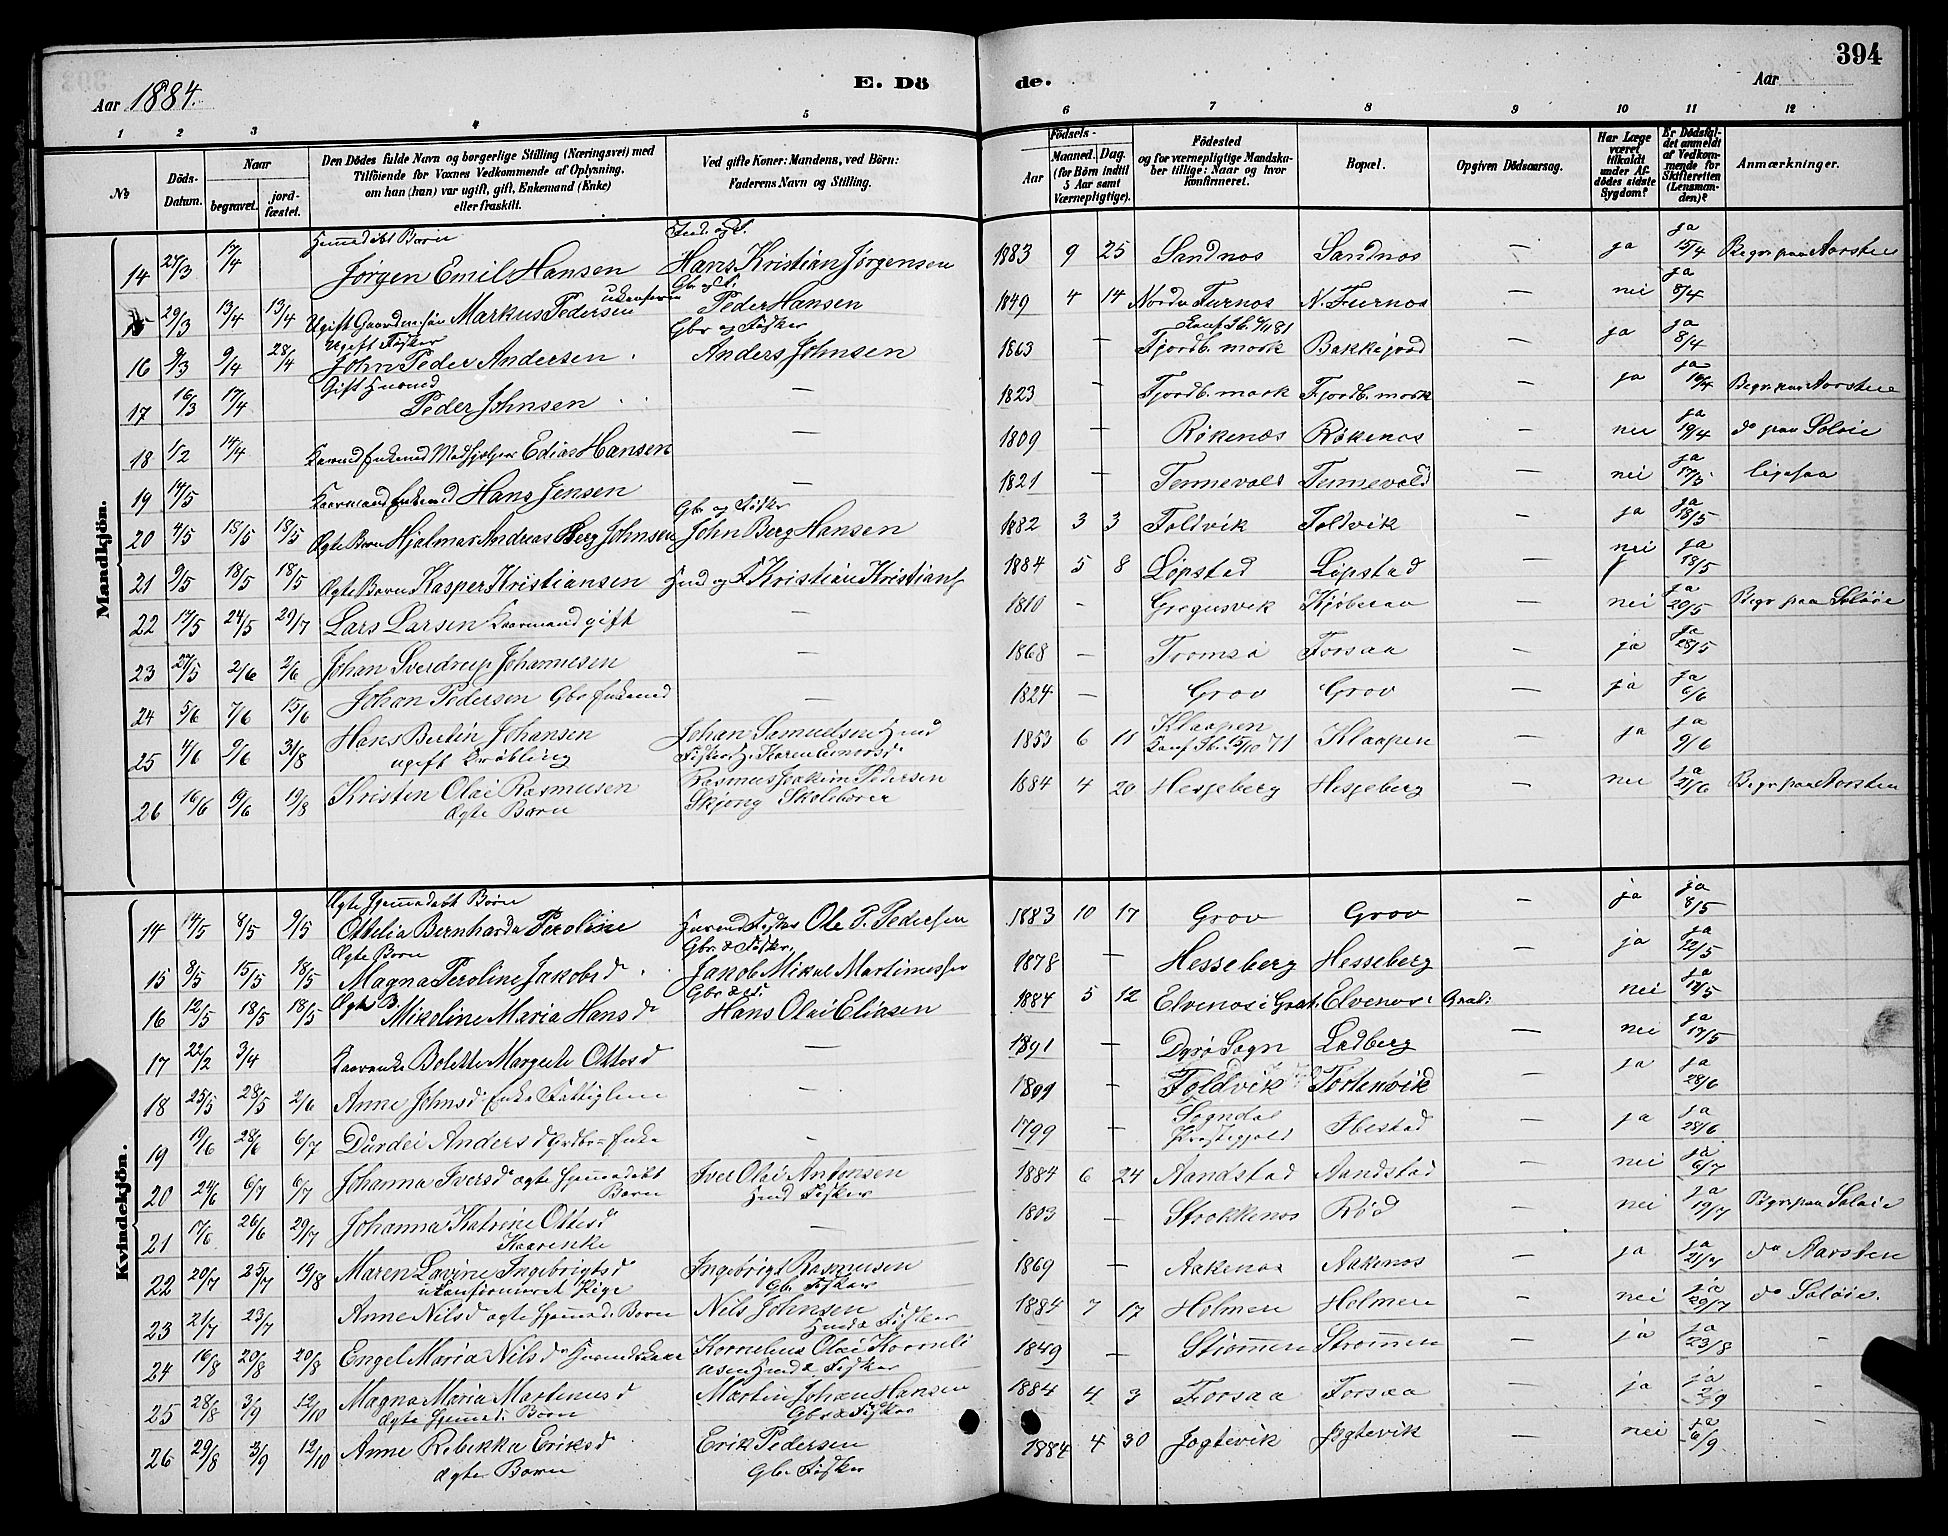 394
Aar 1884.
E. Döde.
Aar
1 2 3 4 5 6 7 8 9 10 11 12
№
Döds-Datum.
Naar
begravet.
jordfæstet.
Den Dödes fulde Navn og borgerlige Stilling (Næringsvei) med Tilföiende for Voxnes Vedkommende af Oplysning, om han (han) var ugift, gift, Enkemand (Enke) eller fraskilt.
Ved gifte Koner: Mandens, ved Börn: Faderens Navn og Stilling.
Födsels-
Aar
Maaned. Dag.
(for Börn indtil 5 Aar samt Værnepligtige).
Födested og for værnepligtige Mandskaber tillige: Naar og hvor konfirmeret.
Bopæl.
Opgiven Dödsaarsag.
Har Læge været tilkaldt under Afdödes sidste Sygdom?
Er Dödsfaldet anmeldt af Vedkommende for Skifteretten (Lensmanden)?
Anmærkninger.
Mandkjön.
14 27/3 17/4 Hjemmedøbt Barn Jørgen Emil Hansen Hans Kristian Jørgensen 1883 9 25 Sandnos Sandnos — ja ja 15/4 Begr. paa Aarsten
29/3 13/4 13/4 Ugift Gaardmsøn Markus Pedersen ukonfirm Gbr og F. Peder Hansen 1849 4 14 Nordre Furnos N. Furnos — nei ja 8/4
16 9/3 9/4 28/4 Ugift Fisker John Peder Andersen Gbr og Fisker Anders Johnsen 1863 — Fjordb. mark Bakkejord — ja ja 8/4
17 16/3 17/4 Gift Husmd Peder Johnsen — 1823 — Fjordb. mark Fjordb. mark — ja ja 16/4 Begr. paa Aarsten
18 1/2 14/4 Edias Hansen — 1809 — Røkenæs Røkenos — nei ja 19/4 do paa Soløie
19 14/5 Kaarmand Enkemd Hans Jensen — 1821 — Tennevold Tennevold — nei ja 17/5 ligesaa
20 4/5 18/5 18/5 Ægte Barn Hjalmar Andreas Berg Johnsen Gbr og Fisker John Berg Hansen 1882 3 3 Foldvik Foldvik — ja ja 18/5
21 9/5 18/5 18/5 Ægte Barn Kasper Kristiansen Husmd og F Kristian Kristians 1884 5 8 Løpstad Løpstad — nei ja 18/5
22 17/5 24/5 29/7 Lars Larsen Kaarmand gift — 1810 - Gregusvik — nei ja 20/5 Begr paa Soløie
23 27/5 2/6 2/6 Johan Sverdrup Johannesen — 1868 — Tromsø Forsaa — ja ja 28/5
24 5/6 7/6 15/6 Johan Pedersen Gbr Enkemd — 1824 — Grov Grov — ja ja 6/6
25 4/6 9/6 31/8 Hans Bertin Johansen ugift Krøbling Johan Samuelsen 1853 6 11 Klaapen Konf. Ib. 15/10 71 Klaapen — ja ja 9/6
26 16/6 19/6 19/8 Kristen Olai Rasmusen Ægte Barn Rasmus Joakim Pedersen Skjong Skolelærer 1884 4 20 Hesseberg Hesseberg — nei ja 21/6 Begr paa Aarsten
Kvindekjön.
14 14/5 8/5 9/5 Ægte Hjemmedøbt Barn Ottelia Bernharda Peroline Husmd Fisker Ole P. Pedersen 1883 10 17 Grov Grov — ja ja 8/5
15 8/5 15/5 18/5 Ægte Barn Magna Peroline Jakobsd Gbr & Fisker, Jakob Mikal Martinussen 1878 — Hesseberg Hesseberg — ja ja 12/5
16 12/5 18/5 18/5 Ægte B Mikoline Maria Hansdr Hans Olai Eliasen 1884 5 12 Elvenos i Grat. Elvenos i Grat: nei ja 14/5
17 22/2 3/4 Kaarenke Bolette Margrete Ottosd — 1891 — Dyrø Sogn Ladberg — nei ja 17/5
18 25/5 28/5 2/6 Anne Johnsdr Enke Fattiglem — 1809 — Foldvik — ja ja 28/6
19 19/6 28/6 6/7 Durdei Andersd Grdbr= Enke - 1799 — Sogndal Præstegjeld Ibestad — ja ja 28/6
20 24/6 6/7 6/7 Johanna Iversdr ægte Hjemmedøbt Barn Iver Olai Antonsen Husmd Fisker 1884 6 24 Aandstad Aandstad — nei ja 6/7
21 17/6 26/6 29/7 Johanna Katrine Ottesdr Kaarenke — 1803 — Strokkenos Rød — nei ja 19/7 Begr paa Soløie
22 20/7 25/7 19/8 Maren Lavine Ingebrigtsd ukonfirmeret Pige Ingebrigt Rasmusen Gbr. Fisker 1869 — Aakenos Aakenos — ja ja 21/7 do Aarsten
23 21/7 23/7 Anne Nilsd ægte Hjemmed. Barn Nils Johnsen Husmd & Fisker 1884 7 17 Holmen Holmen — nei ja 29/7 do Soløie.
24 16/8 20/8 20/8 Engel Maria Nilsdr Kornelius Olai Korneliusen Husmd & Fisker 1849 — Strømmen Strømmen — ja ja 23/8 -
25 28/8 3/9 12/10 Magna Maria Martinusd Ægte Hjemmed. Barn Martin Johan Hansen Gbr & Fisker 1884 4 3 Forsaa Forsaa — ja ja 2/9 -
26 29/8 3/9 12/10 Anne Rebekka Eriksd ægte Barn Erik Pedersen Gbr Fisker 1884 4 30 Jogtevik Jogtevik — nei ja 6/9